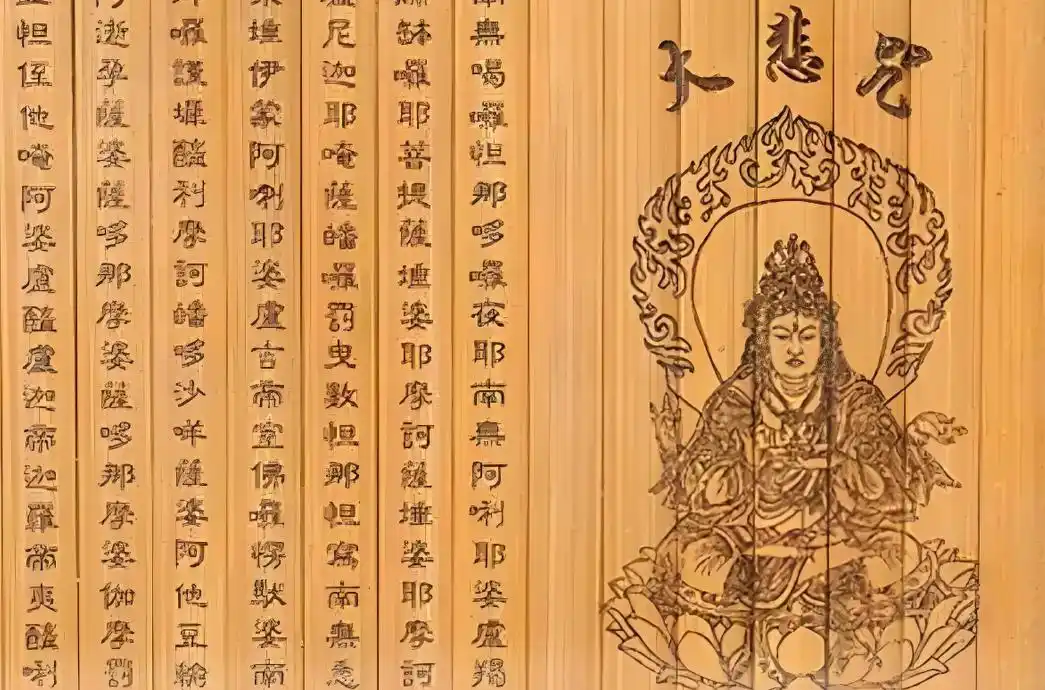 大悲咒
南無喝囉怛那哆囉夜耶南無阿唎耶婆盧羯
缽囉耶菩提薩埵婆耶摩訶薩埵婆耶摩訶
尼迦耶唵薩皤囉罰曳數怛那怛寫南無悉
埵伊蒙阿唎耶婆盧吉帝室佛囉楞馱婆南
囉謹墀醯利摩訶皤哆沙咩薩婆阿他豆輸
阿逝孕薩婆薩哆那摩婆薩哆那摩婆伽摩罰
怛侄他唵阿婆盧醯盧迦帝迦羅帝夷醯唎